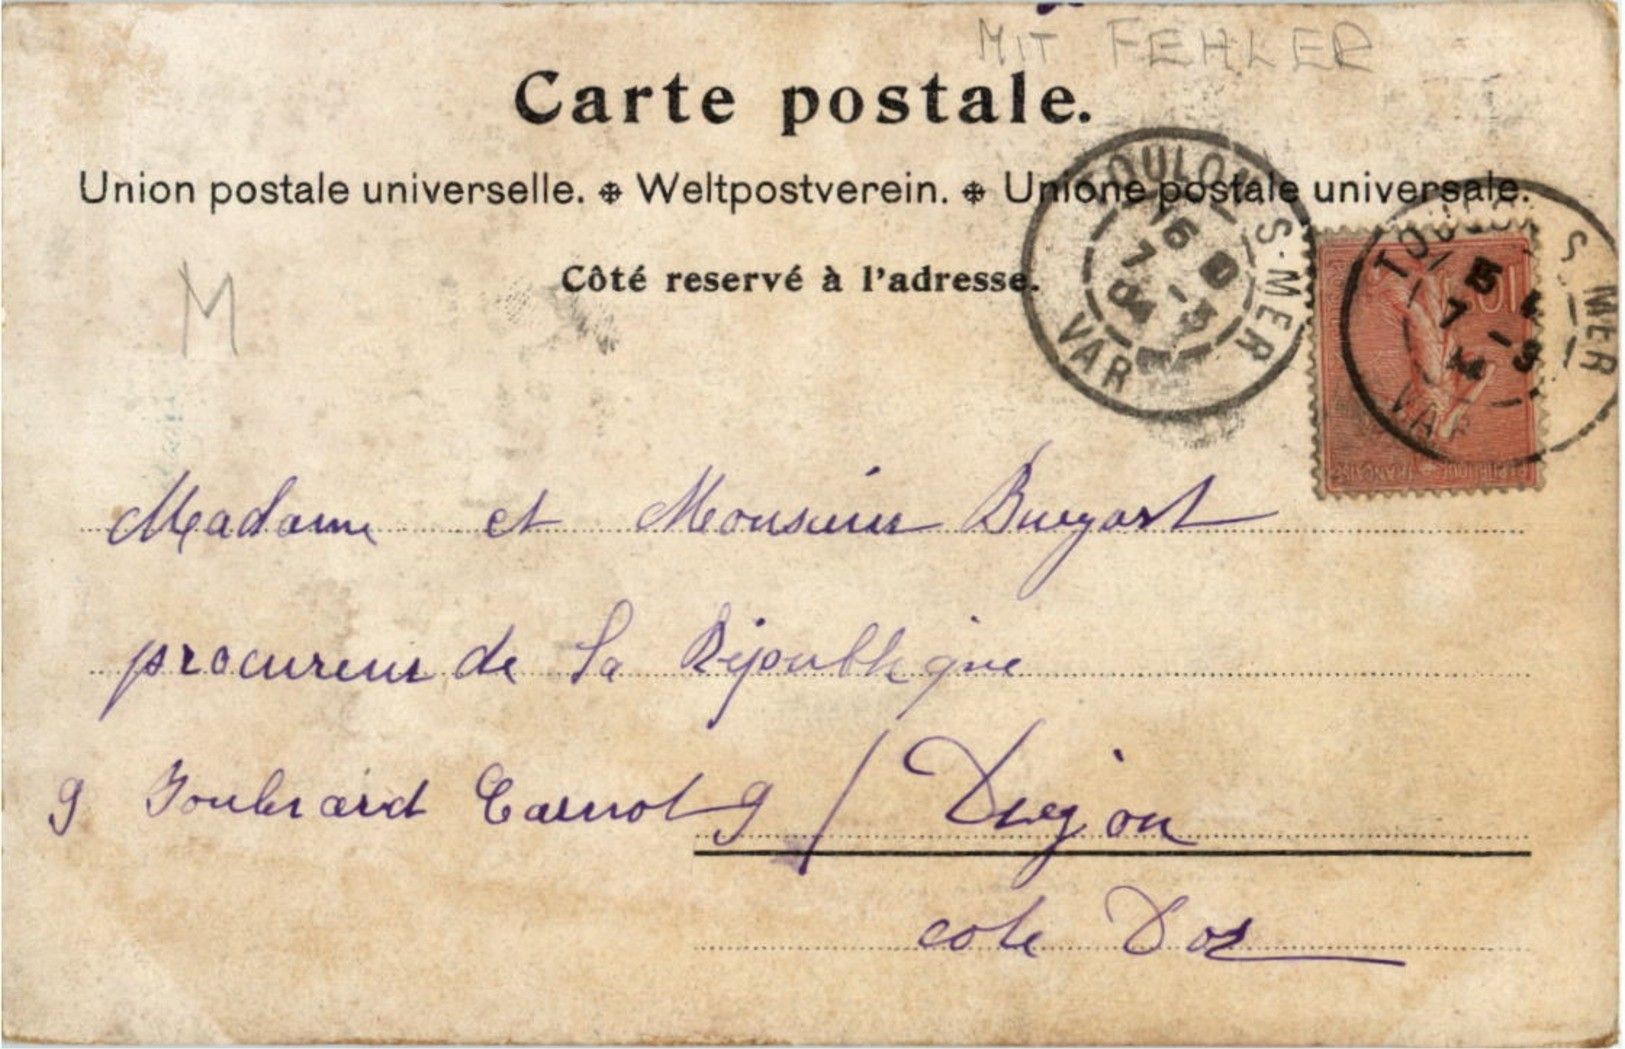 MIT FEHLER
Carte postale.
Union postale universelle. ❉ Weltpostverein. ❉ Unione postale universale.
Côté reservé à l'adresse.
M
TOULON S-MER
7 -3
04
VAR
TOULON S MER
7 -3
VAR
10
Madame et Monsieur
procureur de la République
9 Boulevard Carnot 9 / Diejon
cote Dor